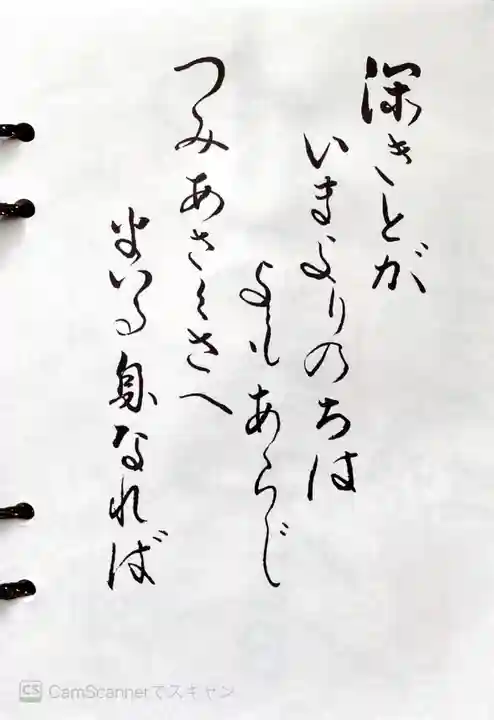 深きとが
いまよりのちは
よもあらじ
つみあさくさへ
まいる身なれば
CS CamScannerでスキャン